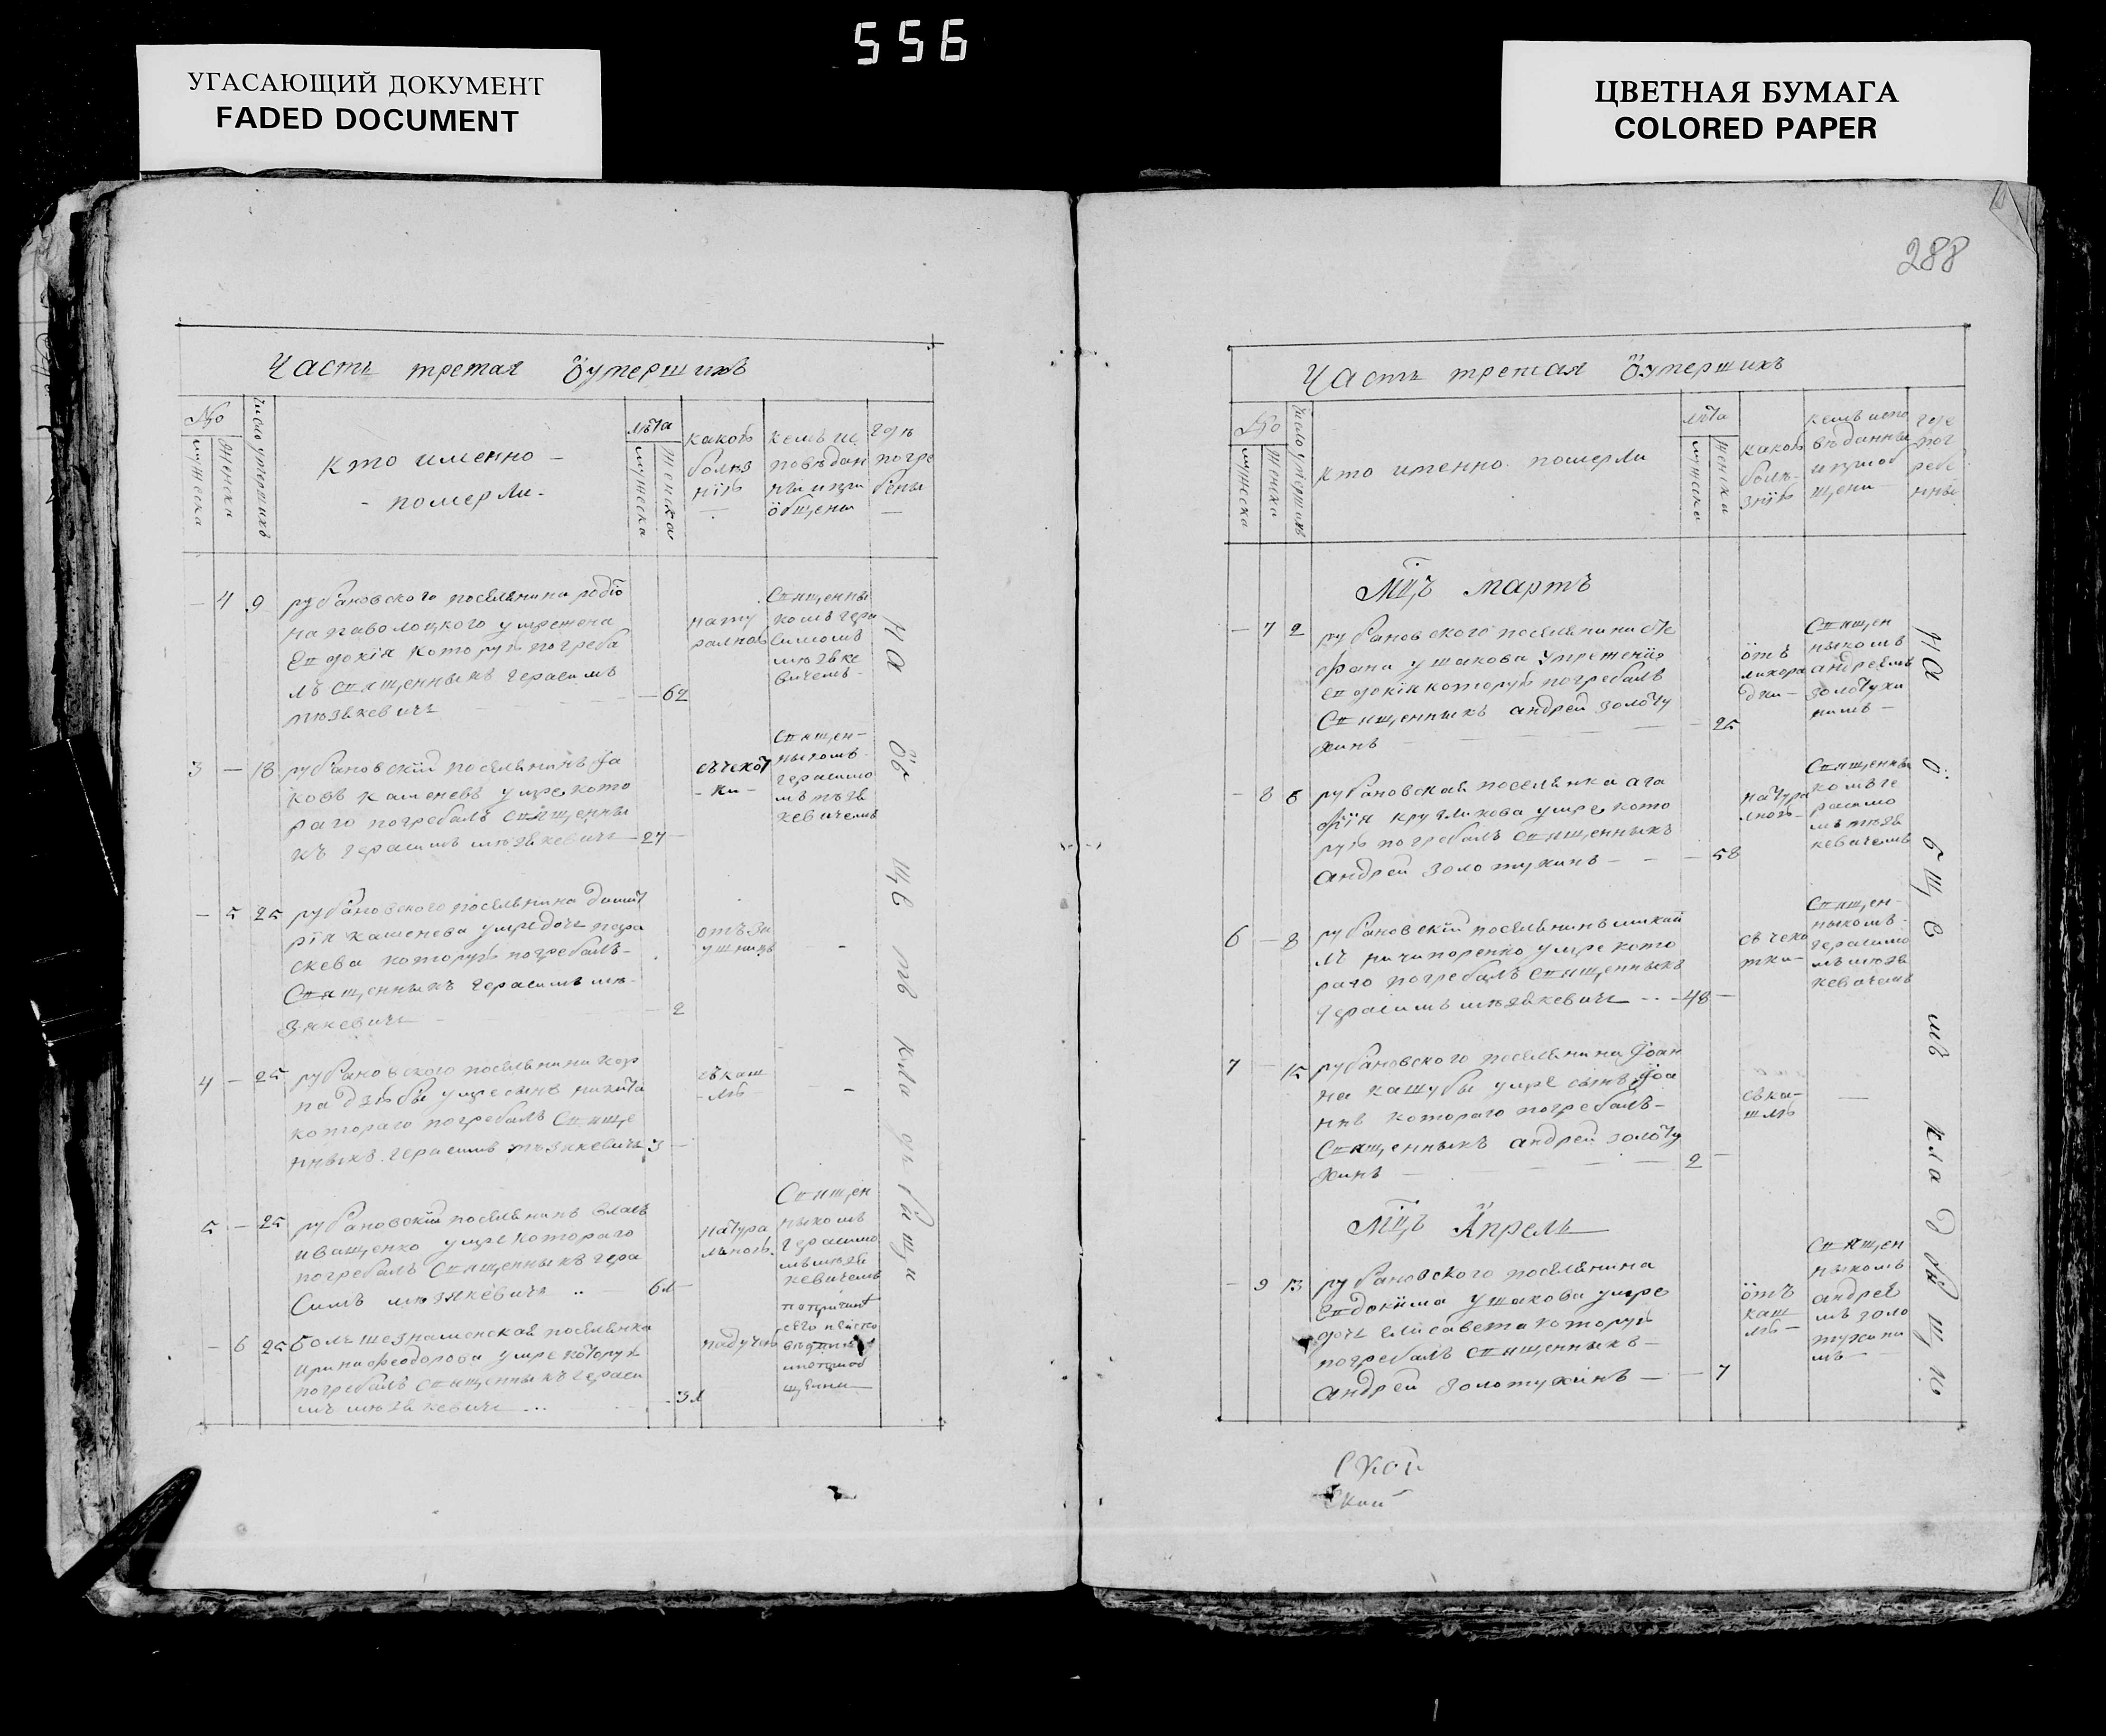 556
УГАСАЮЩИЙ ДОКУМЕНТ
FADED DOCUMENT
ЦВЕТНАЯ БУМАГА
COLORED PAPER
288
Часть третая о умершихъ
№
мужеска
женска
число умершихъ
кто именно
померли
лѣта
мужеска
женска
какою
болѣз
нію
кемъ ис
повѣдан
ни и при
общены
гдѣ
погре
бены
4 9 рубановского поселянина родіо
на паволоцкого умре жена
Евдокія которую погреба
лъ священникъ герасимъ
мюзѣкевичъ
62
нату
ралною
Священны
комъ гера
симомъ
мюзѣке
вичемъ
3 18 рубановскій поселянинъ Іа
ковъ каменевъ умре кото
раго погребалъ священны
къ герасимъ мюзѣкевичъ 27
съчекот
ки
Священ
ныкомъ
герасимо
мъ мюзѣ
кевичемъ
5 25 рубановского поселянина димит
рія каменева умре дочь пара
скева которую погребалъ
Священныкъ герасимъ мю
зякевичъ
2
4 25 рубановского поселянина кар
па дзюбы умре сынъ никита
котораго погребалъ Священ
ныкъ герасимъ мюзякевичъ 3
съ каш
лю
5 25 рубановскій поселянинъ Власъ
иващенко умре котораго
погребалъ Священныкъ гера
симъ мюзякевичъ
натура
льною
Священ
ныкомъ
герасимо
мъ мюзѣ
кевичемъ
6 25 болшезнаменская поселянка
ирина феодорова умре которую
погребалъ священныкъ гераси
мъ мюзѣкевичъ
падучою
на общемъ кладбищи
Часть третая о умершихъ
№
мужеска
женска
число умершихъ
кто именно померли
лѣта
мужеска
женска
какою
болѣ
знію
кемъ испо
вѣданны
и приоб
щены
где
пог
ребе
нны
Мцъ мартъ
7 2 рубановского поселянина сте
фана ушакова умре жена
евдокія которую погребалъ
Священныкъ андрей золоту
хинъ
25
отъ
лихора
дки
Священ
ныкомъ
андреемъ
золотухи
нимъ
8 6 рубановская поселянка ага
фія круглякова умре кото
рую погребалъ священныкъ
андрей золотухинъ
58
натура
лною
Священны
комъ ге
расимо
мъ мюзѣ
кевичемъ
6 8 рубановскій поселянинъ михаи
лъ ничипоренко умре кото
раго погребалъ священныкъ
герасимъ мюзѣкевичъ 48
съ чеко
тки
Священ
ныкомъ
герасимо
мъ мюзѣ
кевичемъ
7 15 рубановского поселянина Іоан
на кашубы умре сынъ Іоа
ннъ котораго погребалъ
Священныкъ андрей золоту
хинъ
2
съ ка
шлю
Мцъ Апрель
9 13 рубановского поселянина
Евдокима ушакова умре
дочь елисавета которую
погребалъ священныкъ
андрей золотухинъ
7
отъ
каш
лю
Священ
ныкомъ
андрее
мъ золо
тухини
мъ
на общемъ кладбищи
ской
ской